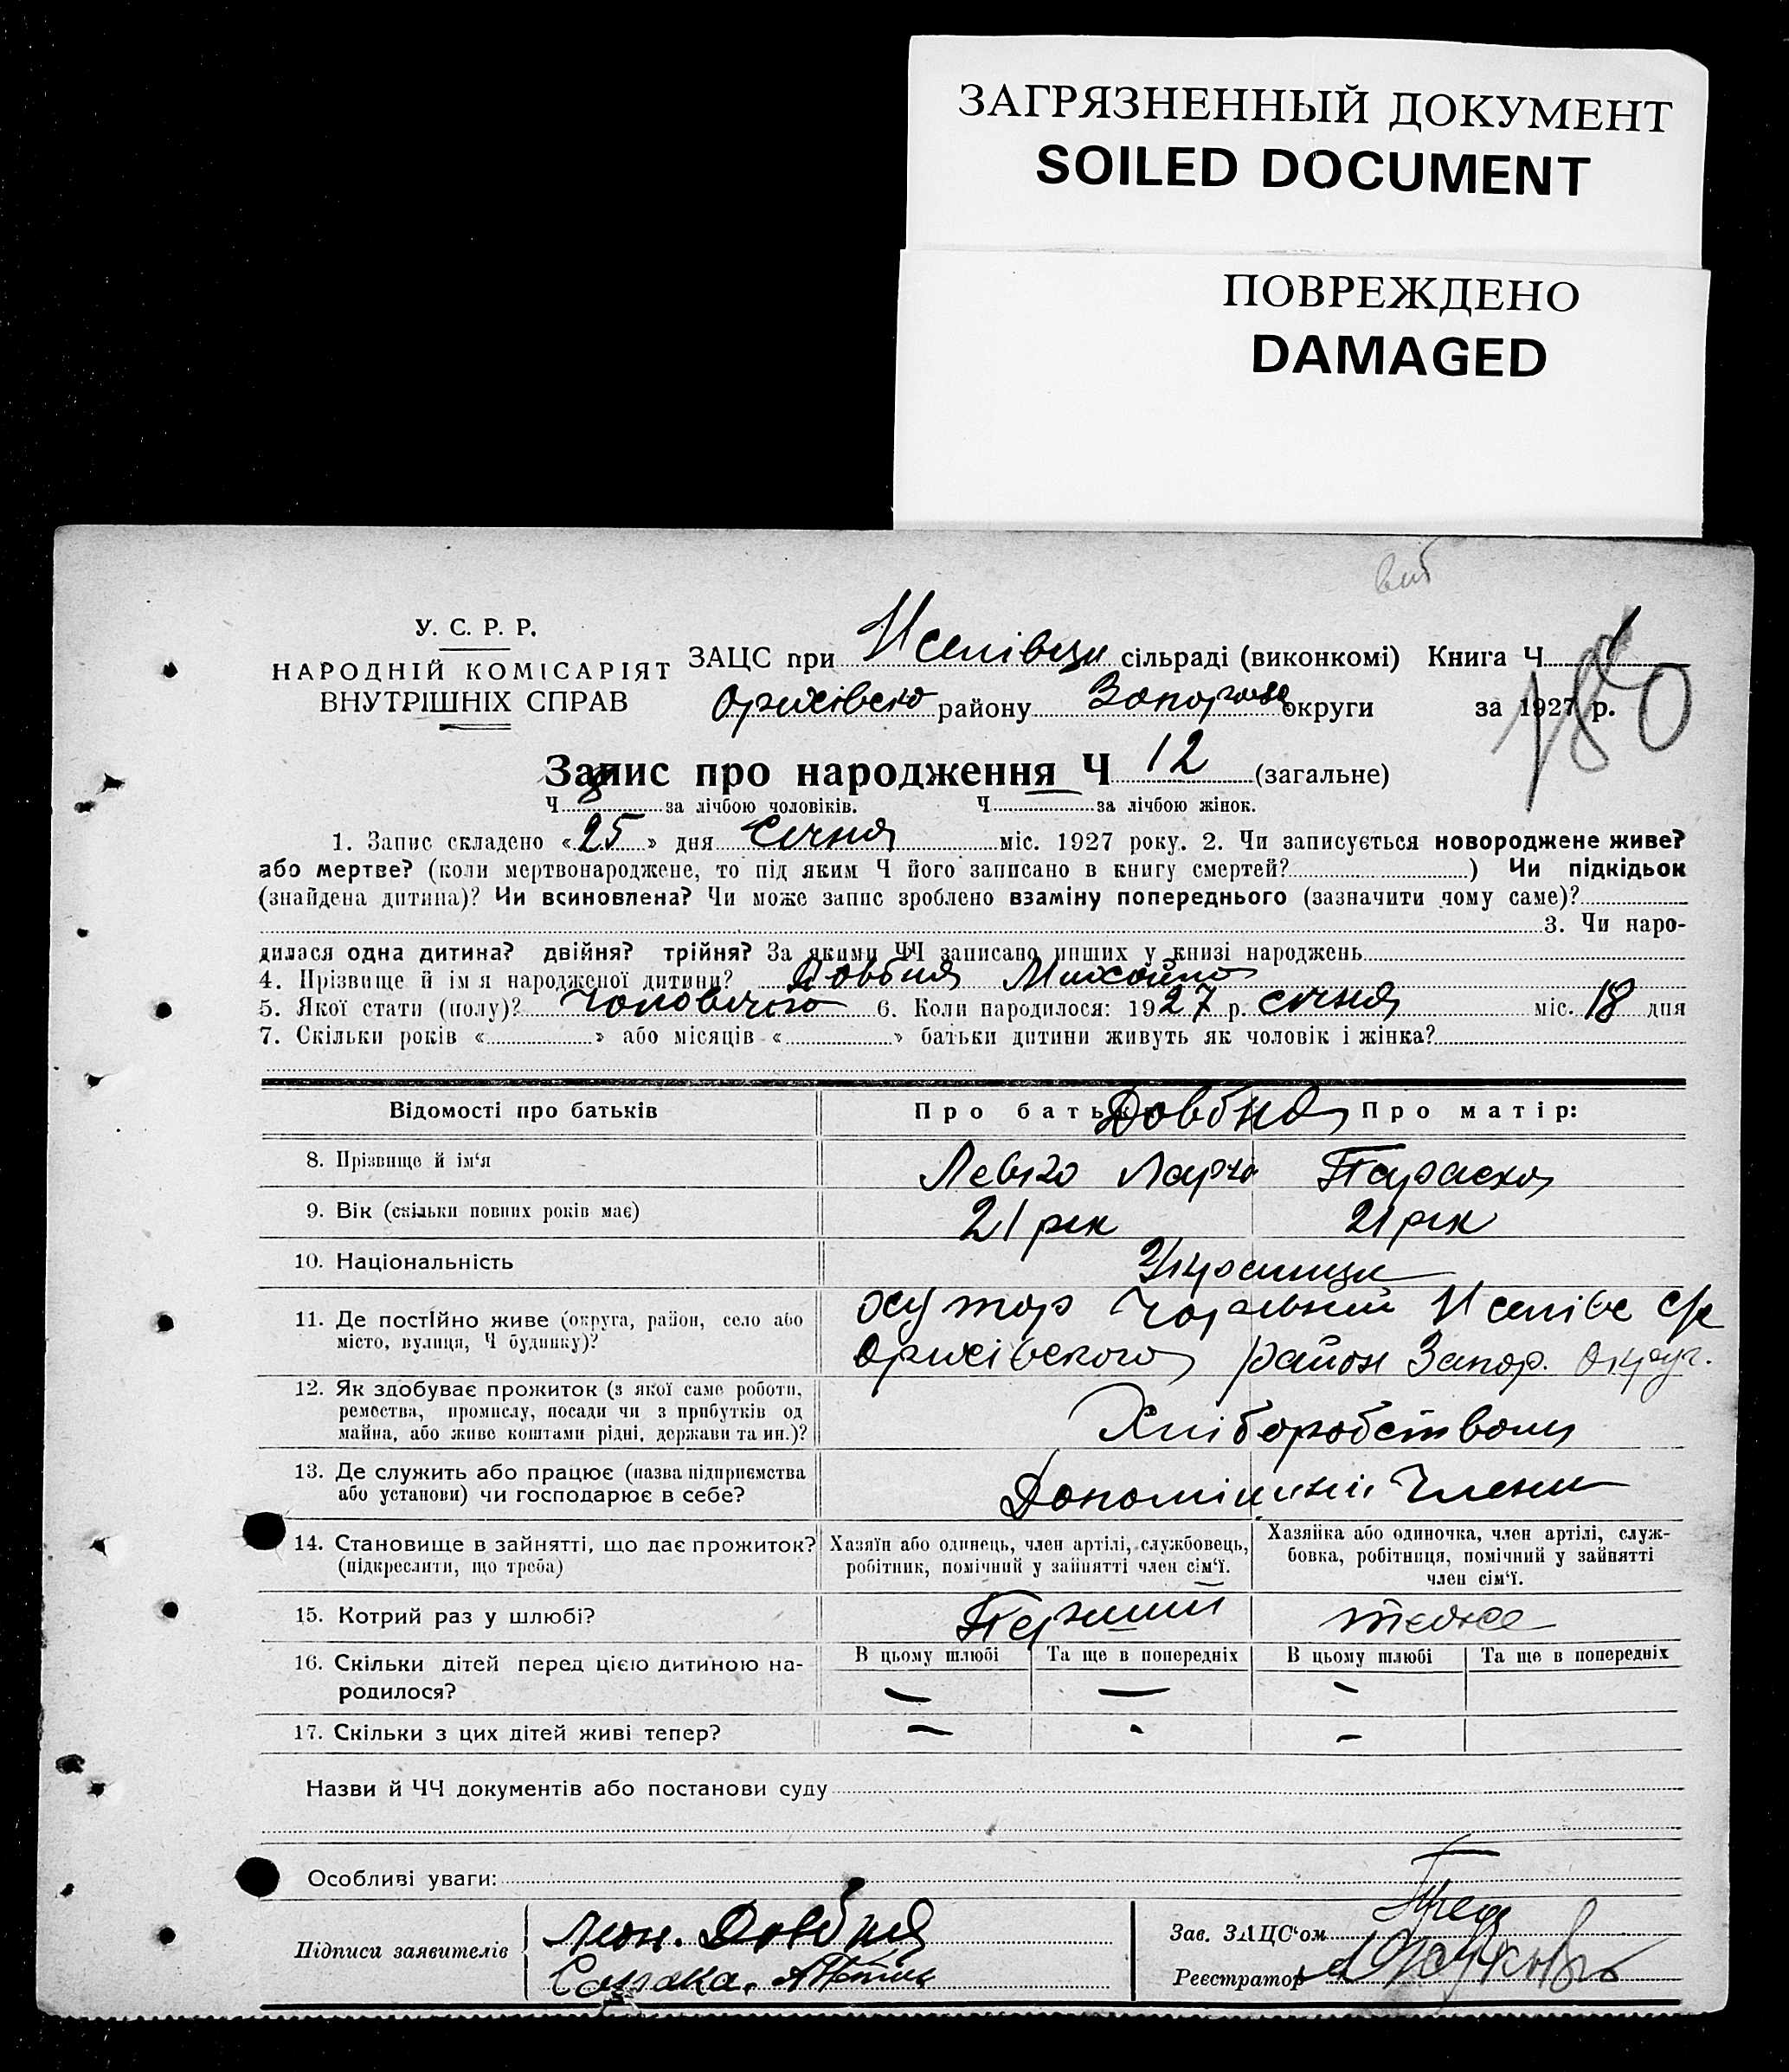 ЗАГРЯЗНЕННЫЙ ДОКУМЕНТ
SOILED DOCUMENT
ПОВРЕЖДЕНО
DAMAGED
У. С. Р. Р.
НАРОДНІЙ КОМІСАРІЯТ
ВНУТРІШНІХ СПРАВ
ЗАЦС при сільраді (виконкомі) Книга Ч. 1
180
району округи за 1927 р.
Запис про народження Ч 12 (загальне)
Ч. 8 за лічбою чоловіків. Ч. за лічбою жінок.
1. Запис складено «25» дня Січня міс. 1927 року. 2. Чи записується новороджене живе?
або мертве? (коли мертвонароджене, то під яким Ч його записано в книгу смертей? ) Чи підкідьок
(знайдена дитина)? Чи всиновлена? Чи може запис зроблено взаміну попереднього (зазначити чому саме)?
3. Чи наро-
дилася одна дитина? двійня? трійня? За якими ЧЧ записано инших у книзі народжень
4. Прізвище й ім я народженої дитини? Довбня Михайло
5. Якої стати (полу)? Чоловічого 6. Коли народилося: 1927 р. січня міс. 18 дня
7. Скільки років « » або місяців « » батьки дитини живуть як чоловік і жінка?
Відомості про батьків Про батька Довбня Про матір:
8. Прізвище й ім‘я Левко Параска
9. Вік (скільки повних років має) 21 рік 21 рік
10. Національність Українци
11. Де постійно живе (округа, район, село або
місто, вулиця, Ч будинку)?
хутор
район Запор. Округ.
12. Як здобуває прожиток (з якої саме роботи,
ремества, промислу, посади чи з прибутків од
майна, або живе коштами рідні, держави та ин.)?
Хліборобством
13. Де служить або працює (назва підприємства
або установи) чи господарює в себе?
Члени
14. Становище в зайнятті, що дає прожиток?
(підкреслити, що треба)
Хазяїн або одинець, член артілі, службовець,
робітник, помічний у зайнятті член сім‘ї.
Хазяйка або одиночка, член артілі, служ-
бовка, робітниця, помічний у зайнятті
член сім‘ї.
15. Котрий раз у шлюбі? Перший теже
16. Скільки дітей перед цією дитиною на-
родилося?
В цьому шлюбі Та ще в попередніх В цьому шлюбі Та ще в попередніх
— — —
17. Скільки з цих дітей живі тепер? — - —
Назви й ЧЧ документів або постанови суду
Особливі уваги:
Підписи заявителів Довбня
Зав. ЗАЦС‘ом
Реєстратор